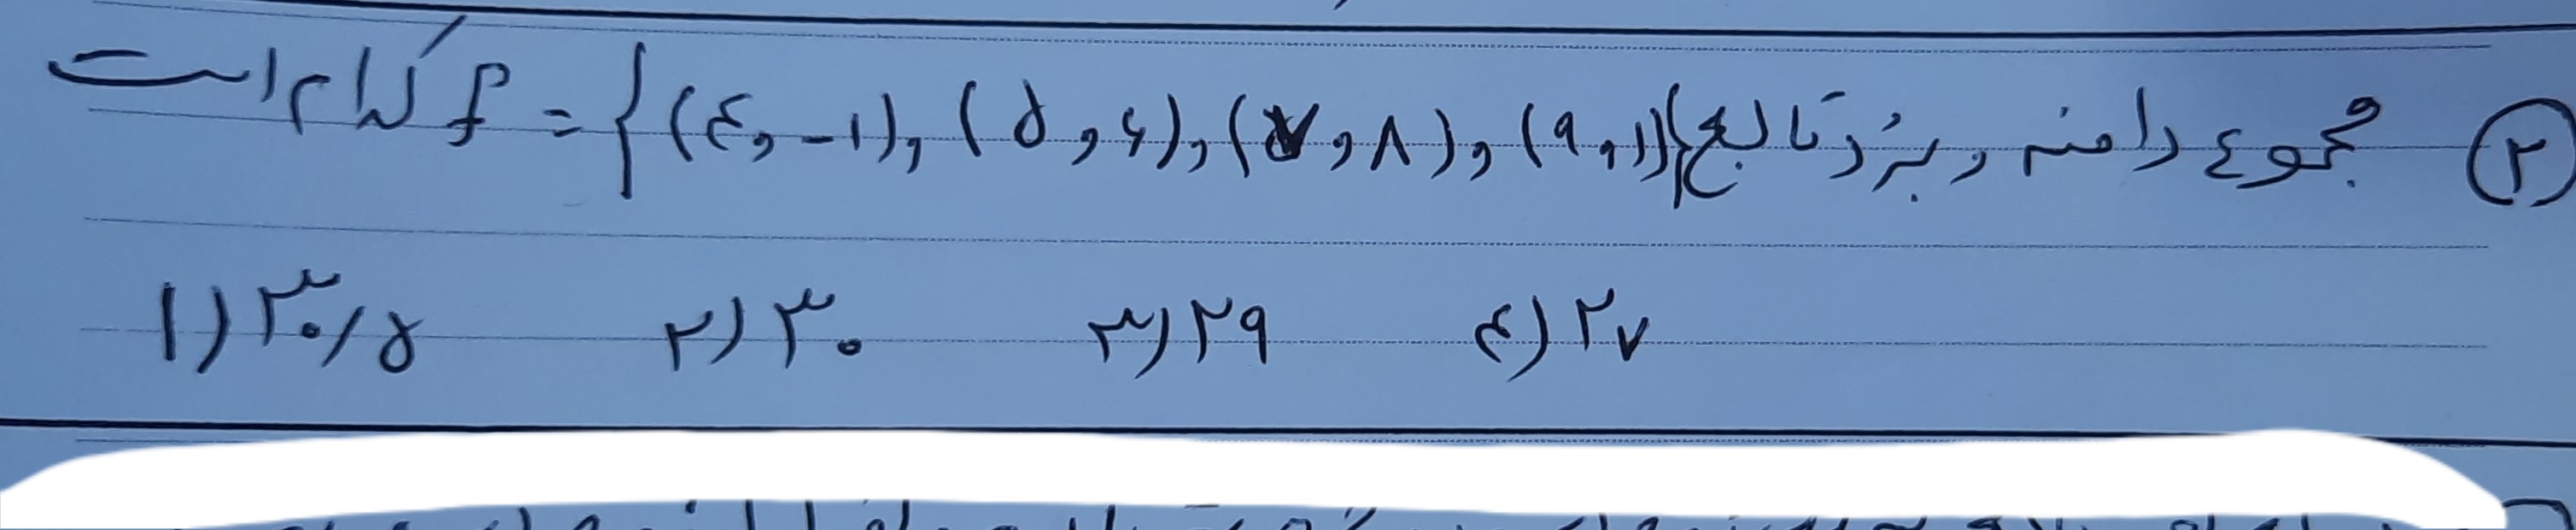 ۲ مجموع دامنه و برد تابع f = {(۴,-۱), (۵,۶), (۷,۸), (۹,۱)} کدام است
۱) ۳۰/۵ ۲) ۳۰ ۳) ۲۹ ۴) ۲۷